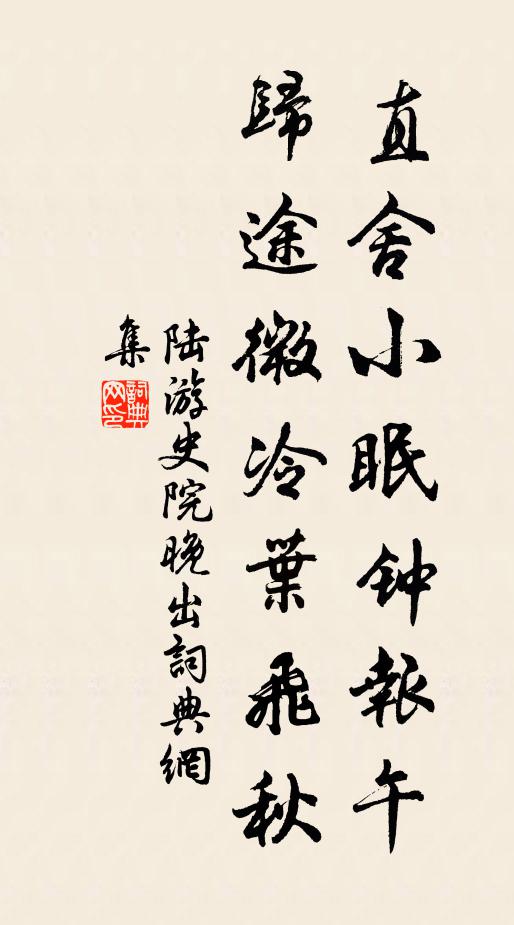 直舍小眠钟報午
歸途微冷葉飛秋
陆游史院晚出詞典網
集
詞典网印